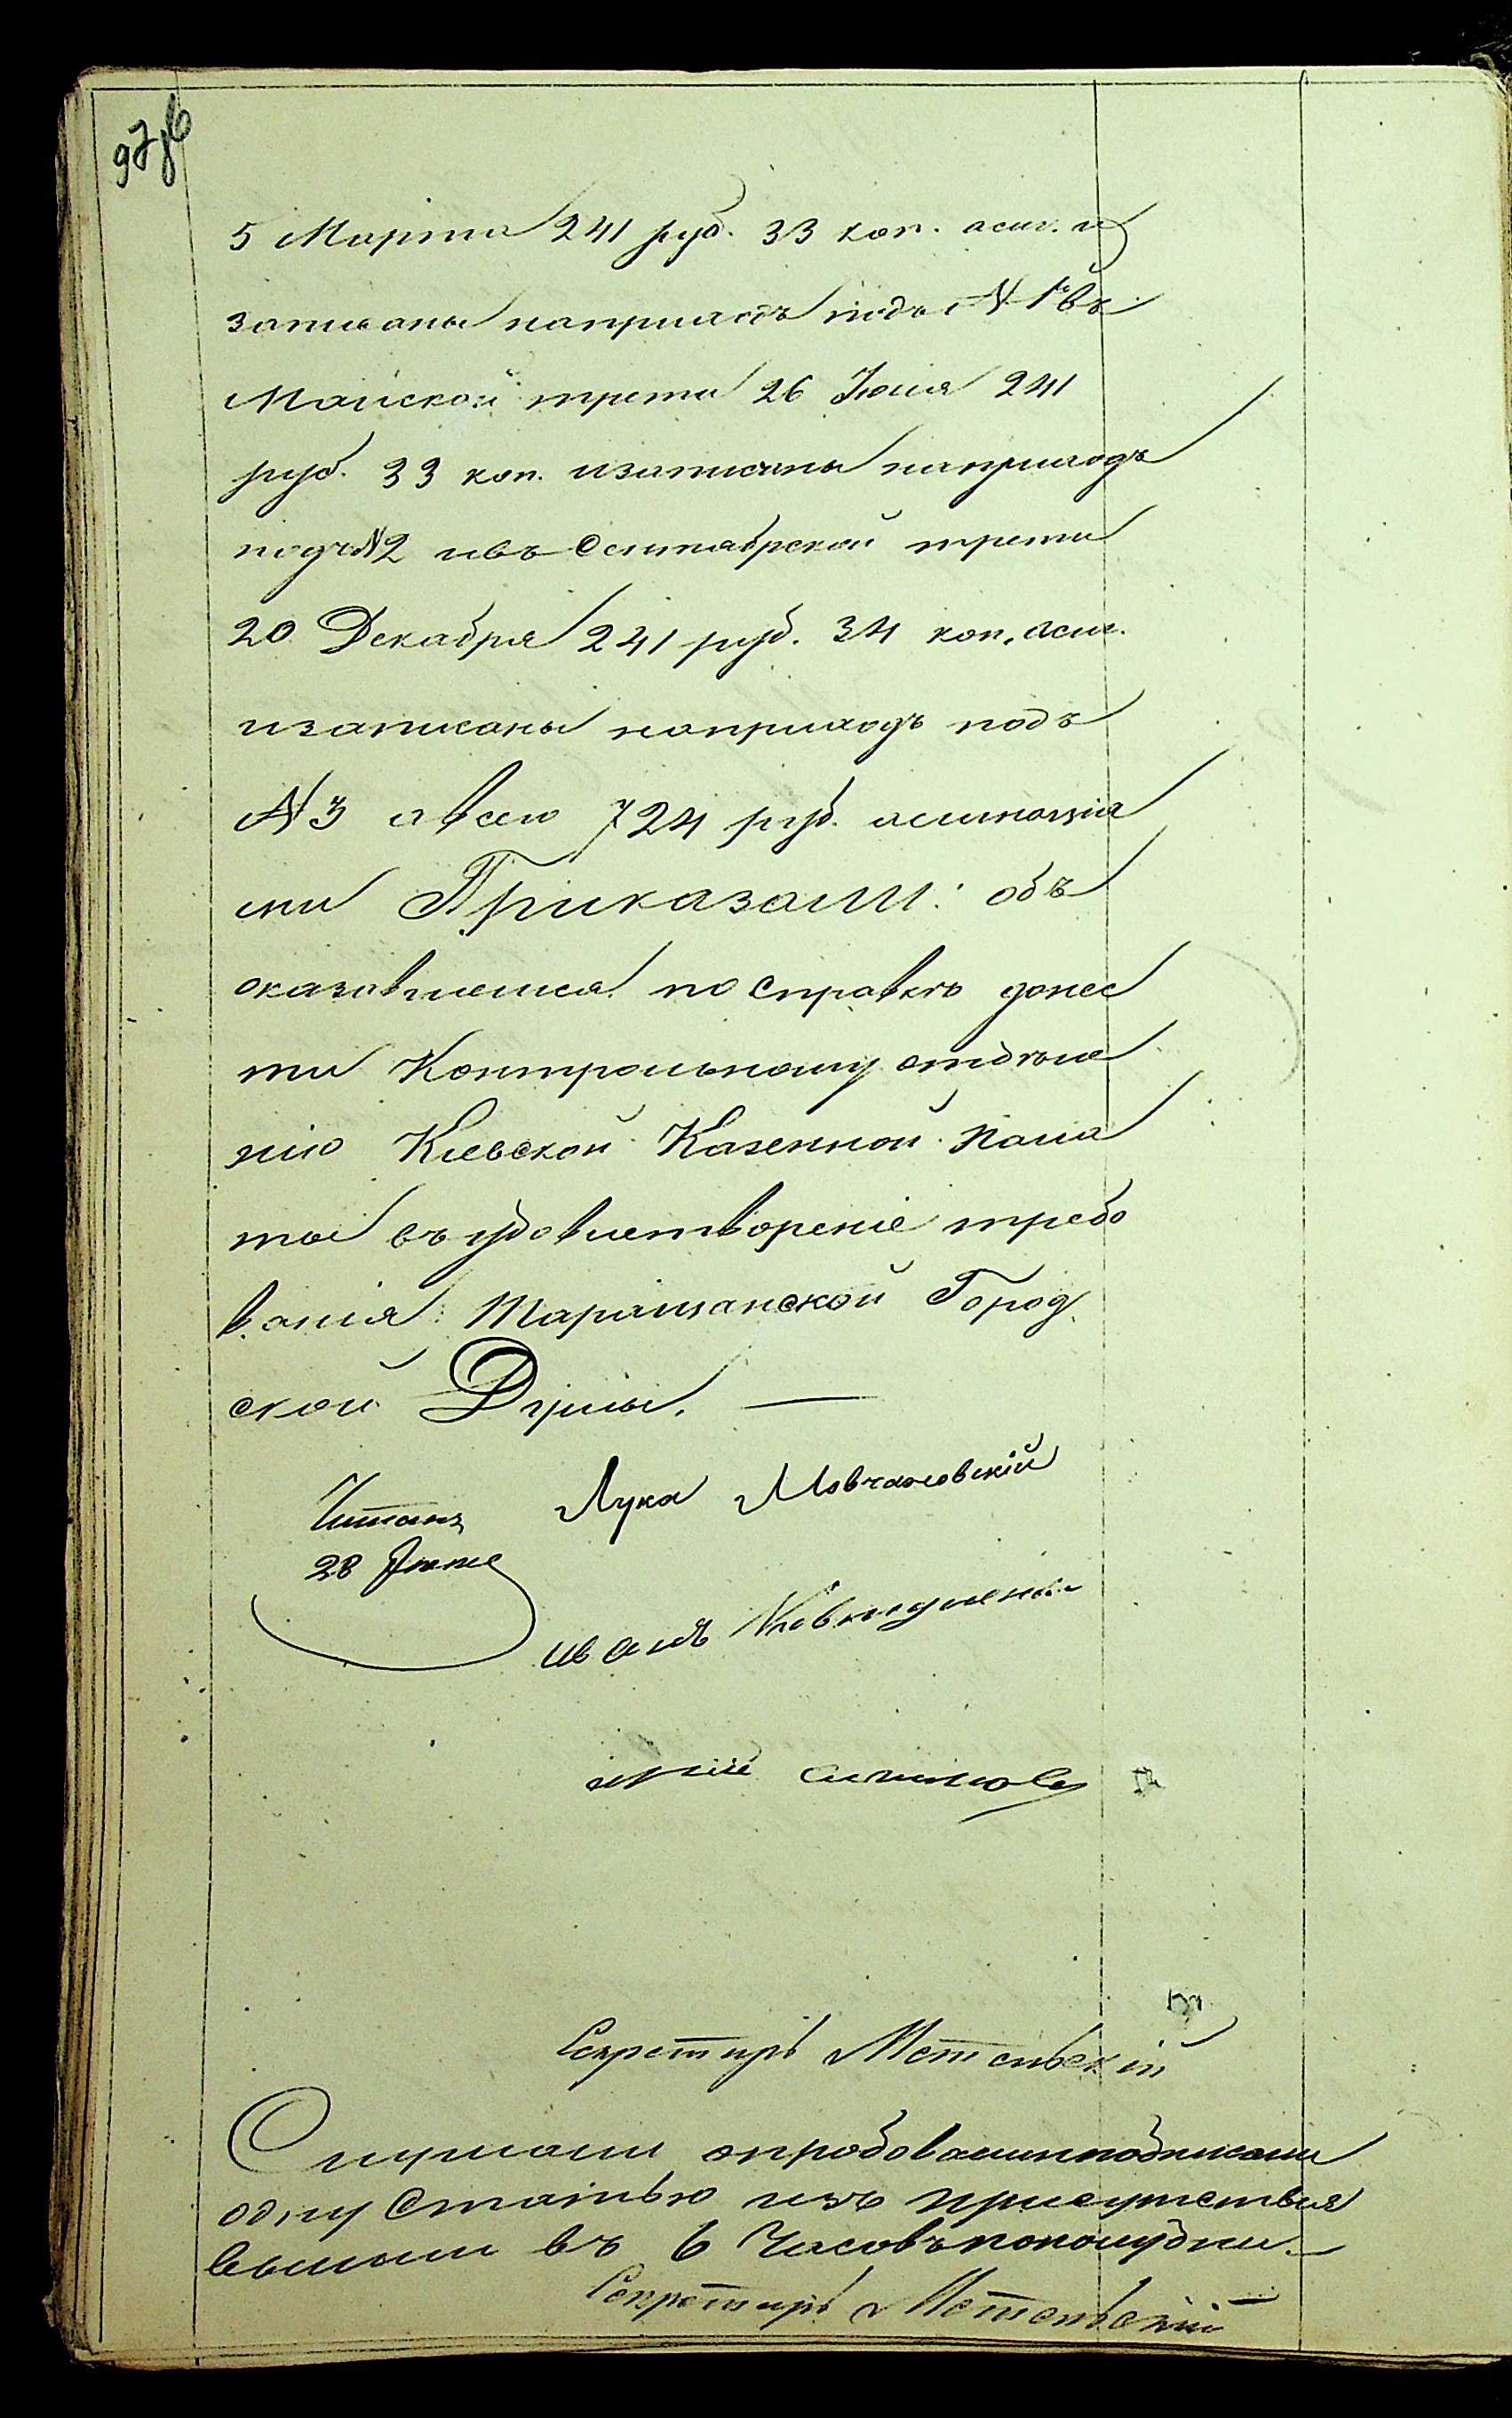 97об
5 Марта 241 руб. 33 коп. асиг. и
записаны наприходъ подъ №1й въ
Майской трети 26 Іюля 241
руб. 33 коп. изаписаны наприходъ
подъ №2 ивъ Сентябрской трети
20 Декабря 241 руб. 34 коп. асиг.
изаписаны наприходъ подъ
№3 авсего 724 руб. асигнація
ми Приказали: объ
оказавшемся по справкѣ донес
ти Контрольному отдѣле
нію Кіевской Казенной Пала
ты въ удовлетвореніе требо
ванія Таращанской Город
ской Думы. —
Читалъ Лука Мовчановскій
28
иванъ
Секретарь Метельскій
Слушали опробовали иподписали
одну Статью изъ присутствія
вышли въ 6 Часовъ пополудни. —
Секретарь Метельскій